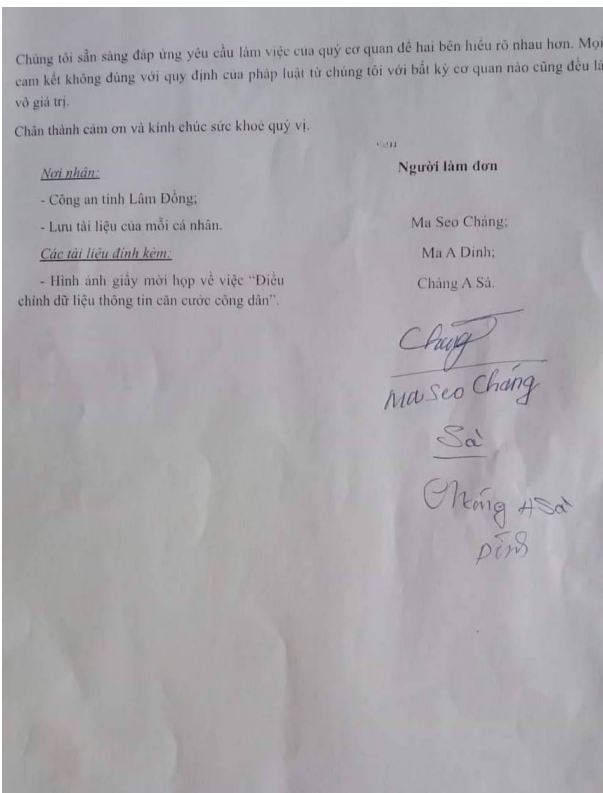 Chúng tôi sẵn sàng đáp ứng yêu cầu làm việc của quý cơ quan để hai bên hiểu rõ nhau hơn. Mọi
cam kết không đúng với quy định của pháp luật từ chúng tôi với bất kỳ cơ quan nào cũng đều là
vô giá trị.
Chân thành cảm ơn và kính chúc sức khoẻ quý vị.
Nơi nhận:
- Công an tỉnh Lâm Đồng;
- Lưu tài liệu của mỗi cá nhân.
Các tài liệu đính kèm:
- Hình ảnh giấy mời họp về việc “Điều
chỉnh dữ liệu thông tin căn cước công dân”.
Người làm đơn
Ma Seo Cháng;
Ma A Dinh;
Cháng A Sả.
Ma Seo Cháng
Sả
A Sả